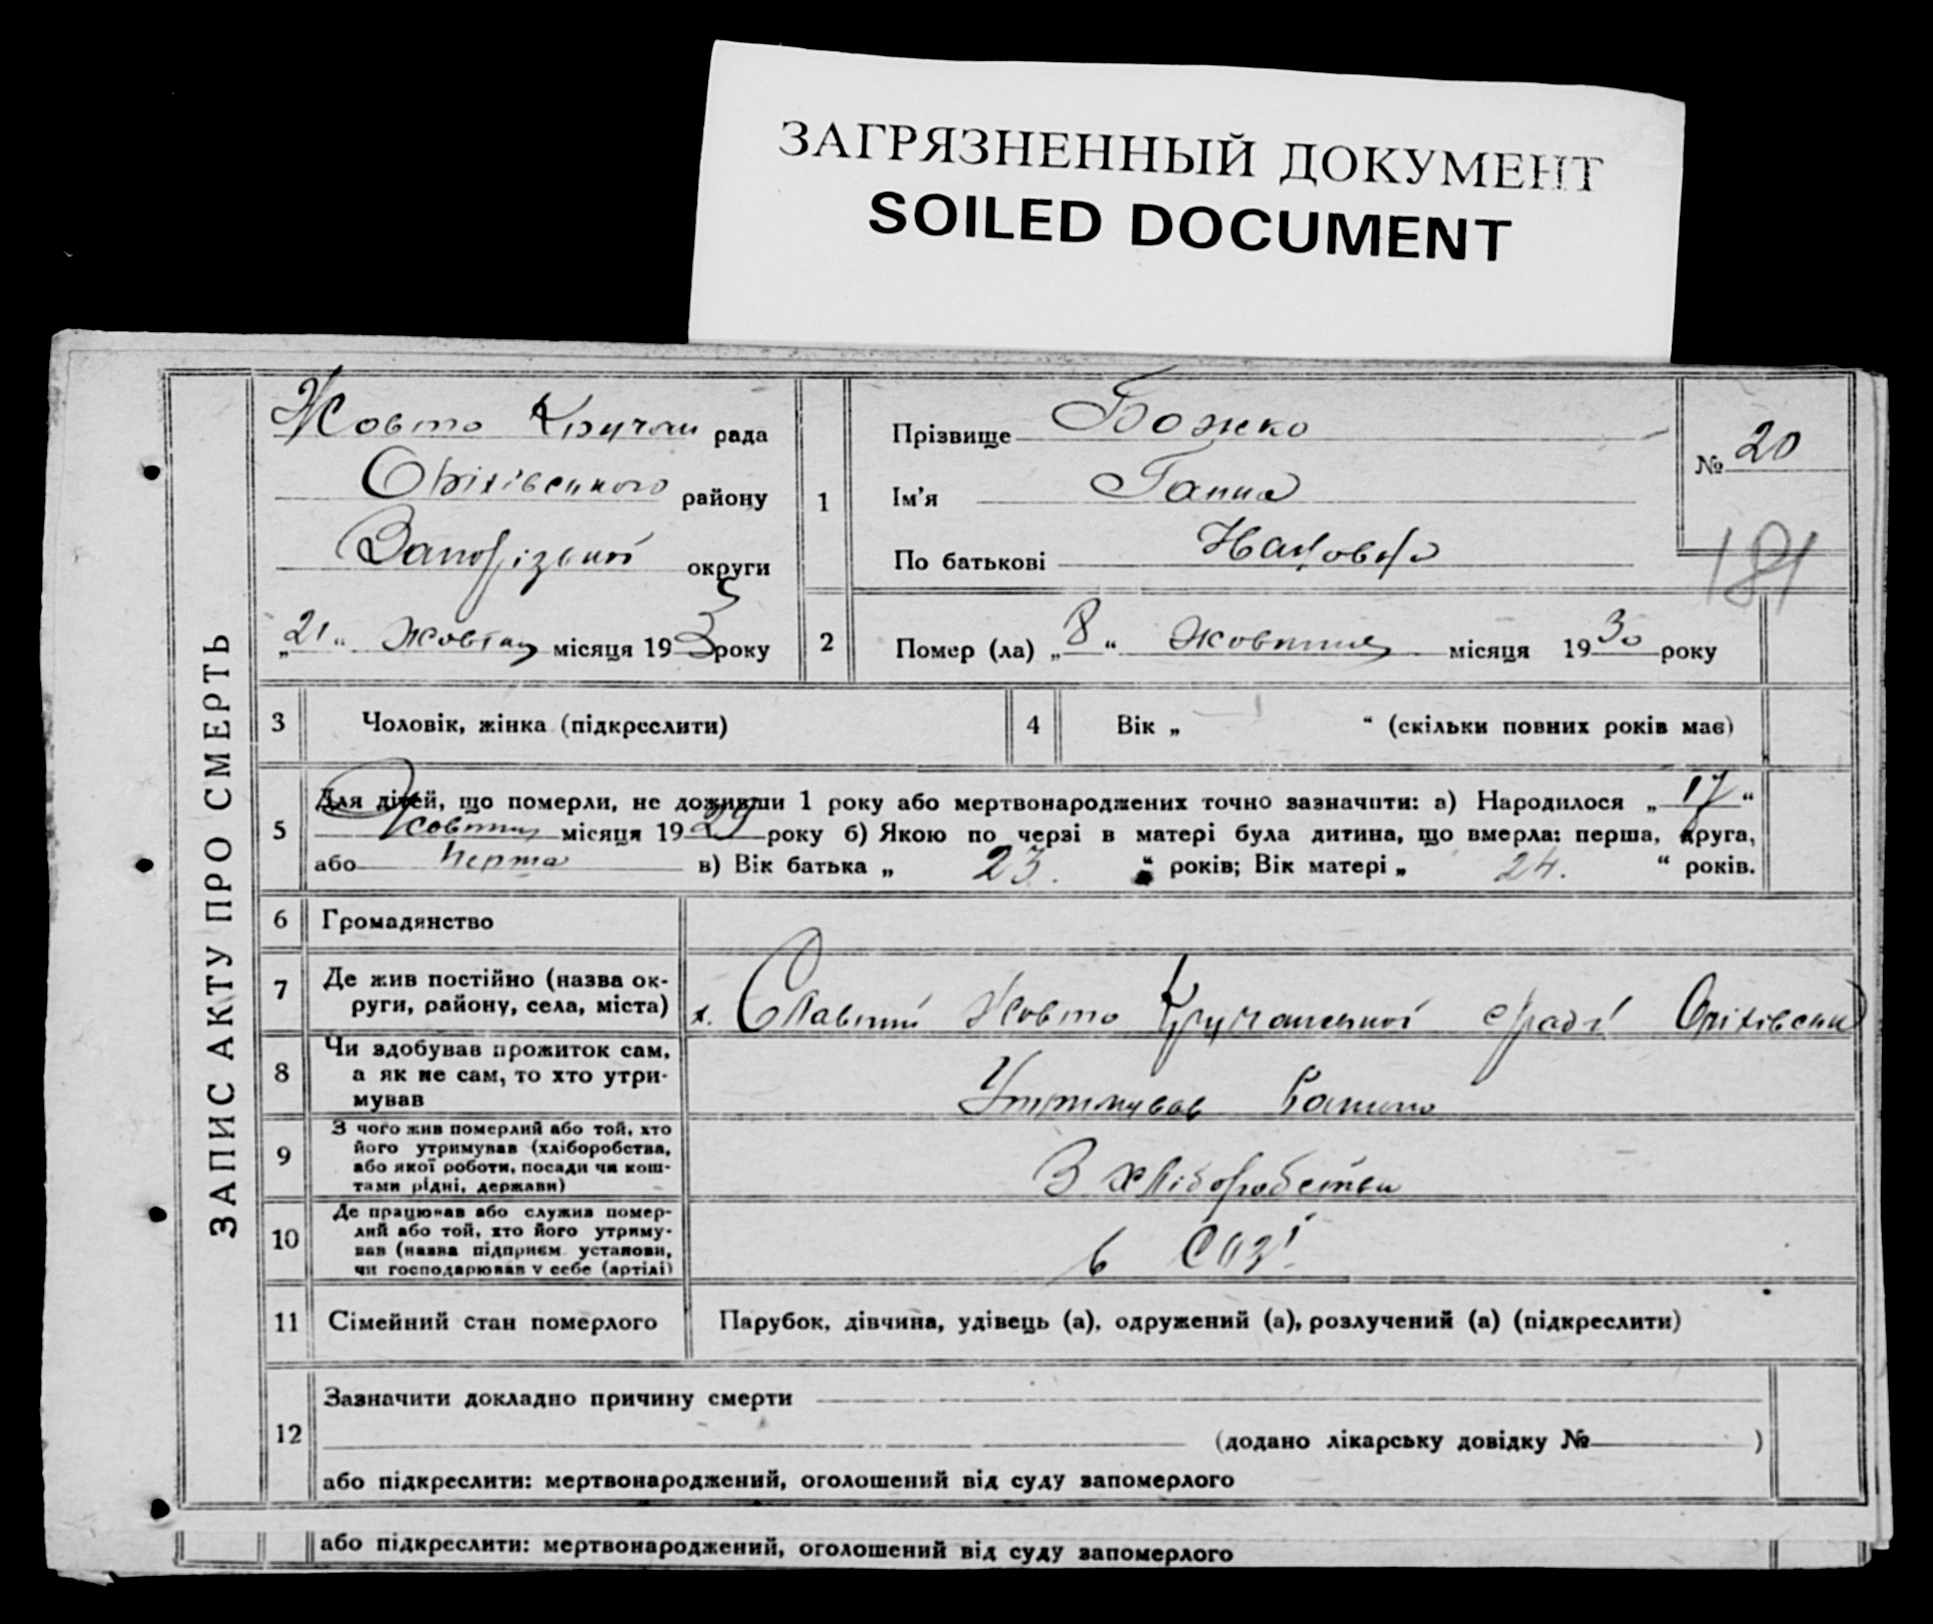 ЗАГРЯЗНЕННЫЙ ДОКУМЕНТ
SOILED DOCUMENT
ЗАПИС АКТУ ПРО СМЕРТЬ
Жовто Кручан рада
Оріхівського району
Запорізької округи
„21“ Жовтня місяця 193 року
1
Прізвище Божко
Ім’я Ганна
По батькові
№ 20
181
2
Помер (ла) „8“ Жовтня місяця 1930 року
3 Чоловік, жінка (підкреслити)
4 Вік „ “ (скільки повних років має)
5 Для дітей, що померли, не доживши 1 року або мертвонароджених точно зазначити: а) Народилося „17“
Жовтня місяця 1929 року б) Якою по черзі в матері була дитина, що вмерла: перша, друга,
або перша в) Вік батька „ 23. “ років; Вік матері „ 24. “ років.
6 Громадянство
7 Де жив постійно (назва ок-
руги, району, села, міста)
х. Славний Жовто Кручанської с/раді Оріхівськ
8 Чи здобував прожиток сам,
а як не сам, то хто утри-
мував
Утримував Батько
9 З чого жив померлий або той, хто
його утримував (хліборобства,
або якої роботи, посади чи кош-
тами рідні, держави)
З хліборобства
10 Де працював або служив помер-
лий або той, хто його утриму-
вав (назва підприєм. установи,
чи господарював у себе (артілі)
в Созі
11 Сімейний стан померлого
Парубок, дівчина, удівець (а), одружений (а), розлучений (а) (підкреслити)
12 Зазначити докладно причину смерти
(додано лікарську довідку № )
або підкреслити: мертвонароджений, оголошений від суду запомерлого
або підкреслити: мертвонароджений, оголошений від суду запомерлого